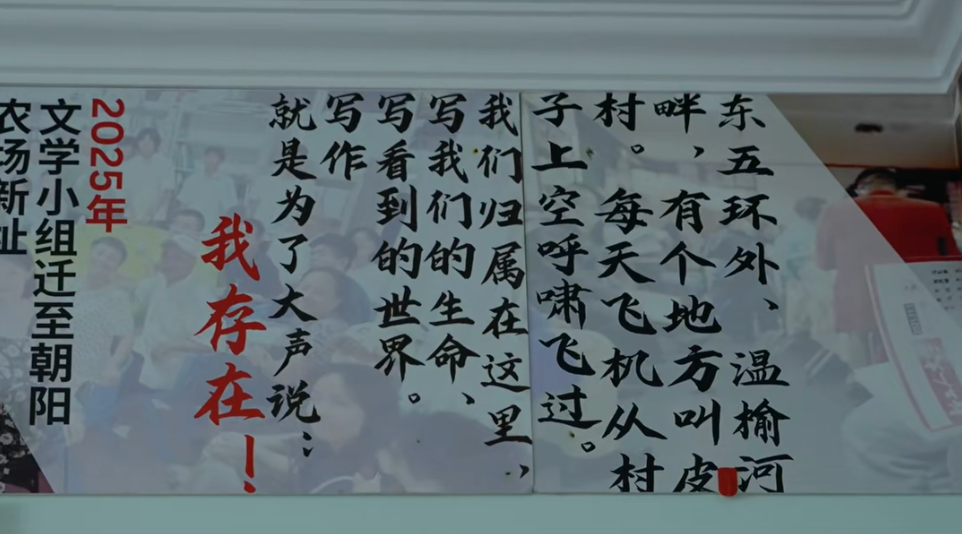 东五环外、温榆河
畔，有个地方叫皮
村。每天飞机从村
子上空呼啸飞过。
我们归属在这里，
写我们的生命、
写看到的世界。
写作
就是为了大声说：
我存在！
2025年
文学小组迁至朝阳
农场新址